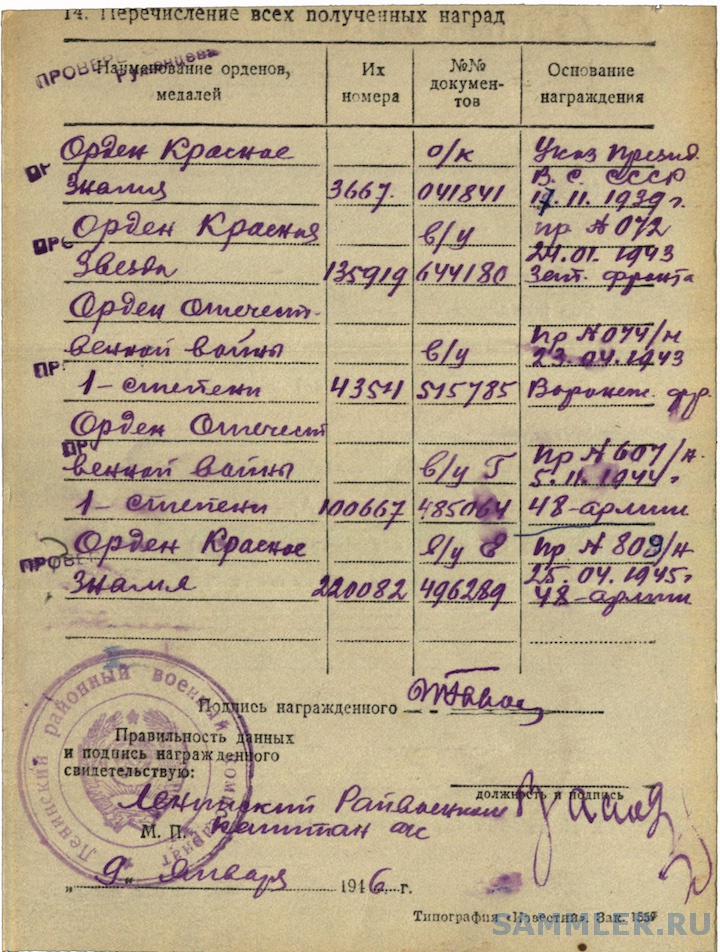 14. Перечисление всех полученных наград
ПРОВЕ
Румянцева
Наименование орденов, медалей
Их номера
№№ документов
Основание награждения
Орден Красное о/к Указ Презид.
В. С. СССР
Знамя 3667. 041841 17.11.1939 г.
Орден Красная в/у пр N 072
24.01.1943
Звезда 135919 644180 Зап. фронта
Орден Отечест-
венной войны в/у пр N 074/н
23.04.1943
1-степени 43541 515785 Воронеж. фр.
Орден Отечест
венной войны в/у Г пр N 607/н.
5.11.1944 г
1-степени 100667 485064 48-армии
Орден Красное в/у Е пр N 809/н
25.04.1945 г
Знамя 220082 496289 48-армии
ПР
ПРС
ПР
ПР
ПРОВЕ
Подпись награжденного
Правильность данных
и подпись награжденного
свидетельствую:
должность и подпись
Ленинский Райвоенком
М. П. Капитан ас
„9“ Января 1946 г.
Ленинский районный военный комиссариат
Типография «Известий». Зак. 1559
SAMMLER.RU